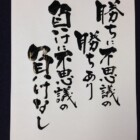 勝ちに不思議の
勝ちあり
負けに不思議の
負けなし